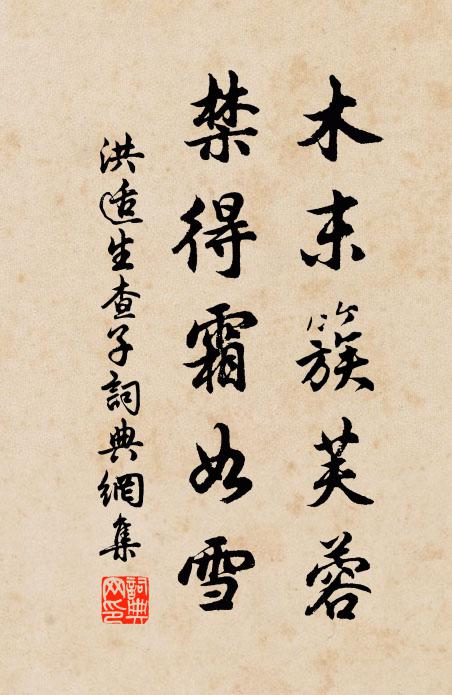 木末簇芙蓉
禁得霜如雪
洪适生查子詞典網集
詞典
網印